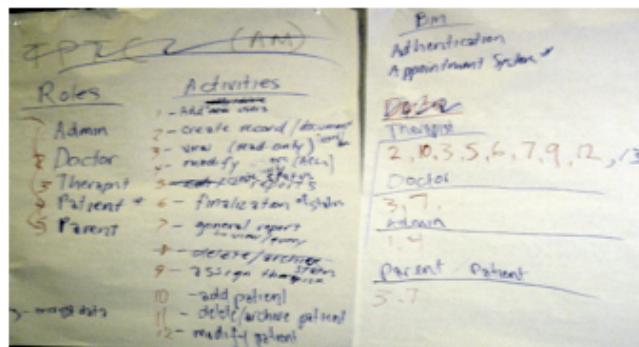 (AM)
Roles
Admin
2 Doctor
3 Therapist
4 Patient *
5 Parent
Activities
1 - Add new users
2 - create record/document
3 - view (read only)
4 - modify
5 - reports
6 - finalization of status
7 - general report
8 - delete/archive
9 - assign
10 - add patient
11 - delete/archive patient
12 - modify patient
data
Bm
Authentication
Appointment System *
Therapist
2, 10, 3, 5, 6, 7, 9, 12, 13
Doctor
3, 7,
Admin
1, 4
Parent Patient
3, 7